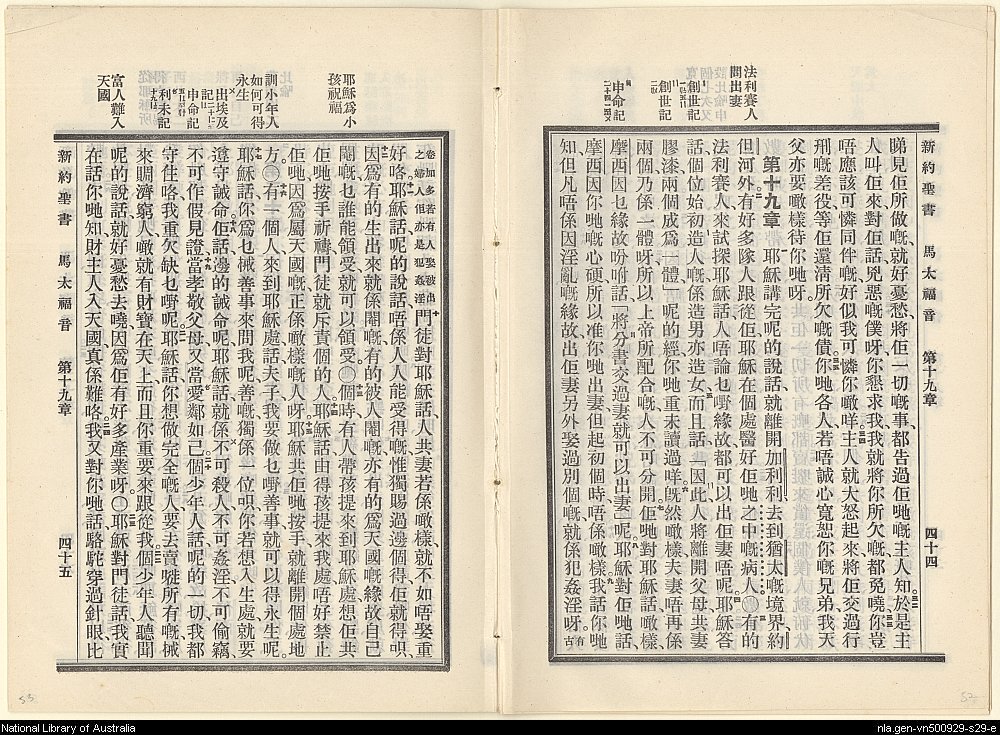 新約聖書　馬太福音　第十九章　四十四
法利賽人
問出妻
創世記
創世記
申命記
睇見佢所做嘅、就好憂愁、將佢一切嘅事、都告過佢哋嘅主人知。於是主
人叫佢來、對佢話、兇惡嘅僕呀、你懇求我、我就將你所欠嘅、都免嘵你、豈
唔應該可憐同伴嘅、好似我可憐你噉咩。主人就大怒起來、將佢交過行
刑嘅差役、等佢還清所欠嘅債、你哋各人、若唔誠心寬恕你嘅兄弟、我天
父亦要噉樣待你哋呀。
第十九章　耶穌講完呢的說話、就離開加利利、去到猶太嘅境界、約
但河外。有好多隊人跟從佢、耶穌在個處醫好佢哋之中嘅病人。有的
法利賽人來試探耶穌、話、人唔論乜嘢緣故、都可以出佢妻唔呢。耶穌答
話、個位始初造人嘅、係造男亦造女、而且話、「因此人將離開父母、共妻
膠漆、兩個成爲一體、」呢的經、你哋重未讀過咩。旣然噉樣、夫妻唔再係
兩個、乃係一體呀、所以上帝所配合嘅、人不可分開。佢哋對耶穌話、噉樣、
摩西因乜緣故吩咐話、「將分書交過妻、就可以出妻」呢。耶穌對佢哋話、
摩西因你哋嘅心硬、所以准你哋出妻、但起初個時、唔係噉樣。我話你哋
知、但凡唔係因淫亂嘅緣故、出佢妻、另外娶過別個嘅、就係犯姦淫呀。有古
新約聖書　馬太福音　第十九章　四十五
耶穌爲小
孩祝福
訓小年人
如何可得
永生
出埃及
記
申命記
利未記
富人難入
天國
卷加多若有人娶被出
之婦人佢亦是犯姦淫門徒對耶穌話、人共妻若係噉樣、就不如唔娶重
好咯。耶穌話、呢的說話、唔係人人能受得嘅、惟獨賜過邊個得、佢就得呮。
因爲有的生出來就係閹嘅、有的被人閹嘅、亦有的爲天國嘅緣故、自己
閹嘅、乜誰能領受、就可以領受。個時有人帶孩提來到耶穌處、想佢共
佢哋按手祈禱、門徒就斥責個的人。耶穌話、由得孩提來我處、唔好禁止
佢哋、因爲屬天國嘅、正係噉樣嘅人呀。耶穌共佢哋按手、就離開個處地
方。有一個人來到耶穌處、話、夫子、我要做乜嘢善事、就可以得永生呢。
耶穌話、你爲乜、拈善事來問我呢、善嘅獨係一位呮、你若想入生處、就要
遵守誡命。佢話、邊的誡命呢、耶穌話、就係不可殺人、不可姦淫、不可偷竊、
不可作假見證、當孝敬父母、又當愛鄰如己。個少年人話、呢的一切、我都
守住咯、我重欠缺乜嘢呢。耶穌話、你想做完全嘅人、要去賣嘥所有嘅、拈
來賙濟窮人、噉就有財寶在天上、而且你重要來跟從我。個少年人聽聞
呢的說話、就好憂愁去嘵、因爲佢有好多產業呀。耶穌對門徒話、我實
在話你哋知、財主人入天國、真係難咯。我又對你哋話、駱駝穿過針眼、比
52
53
National Library of Australia
nla.gen-vn500929-s29-e